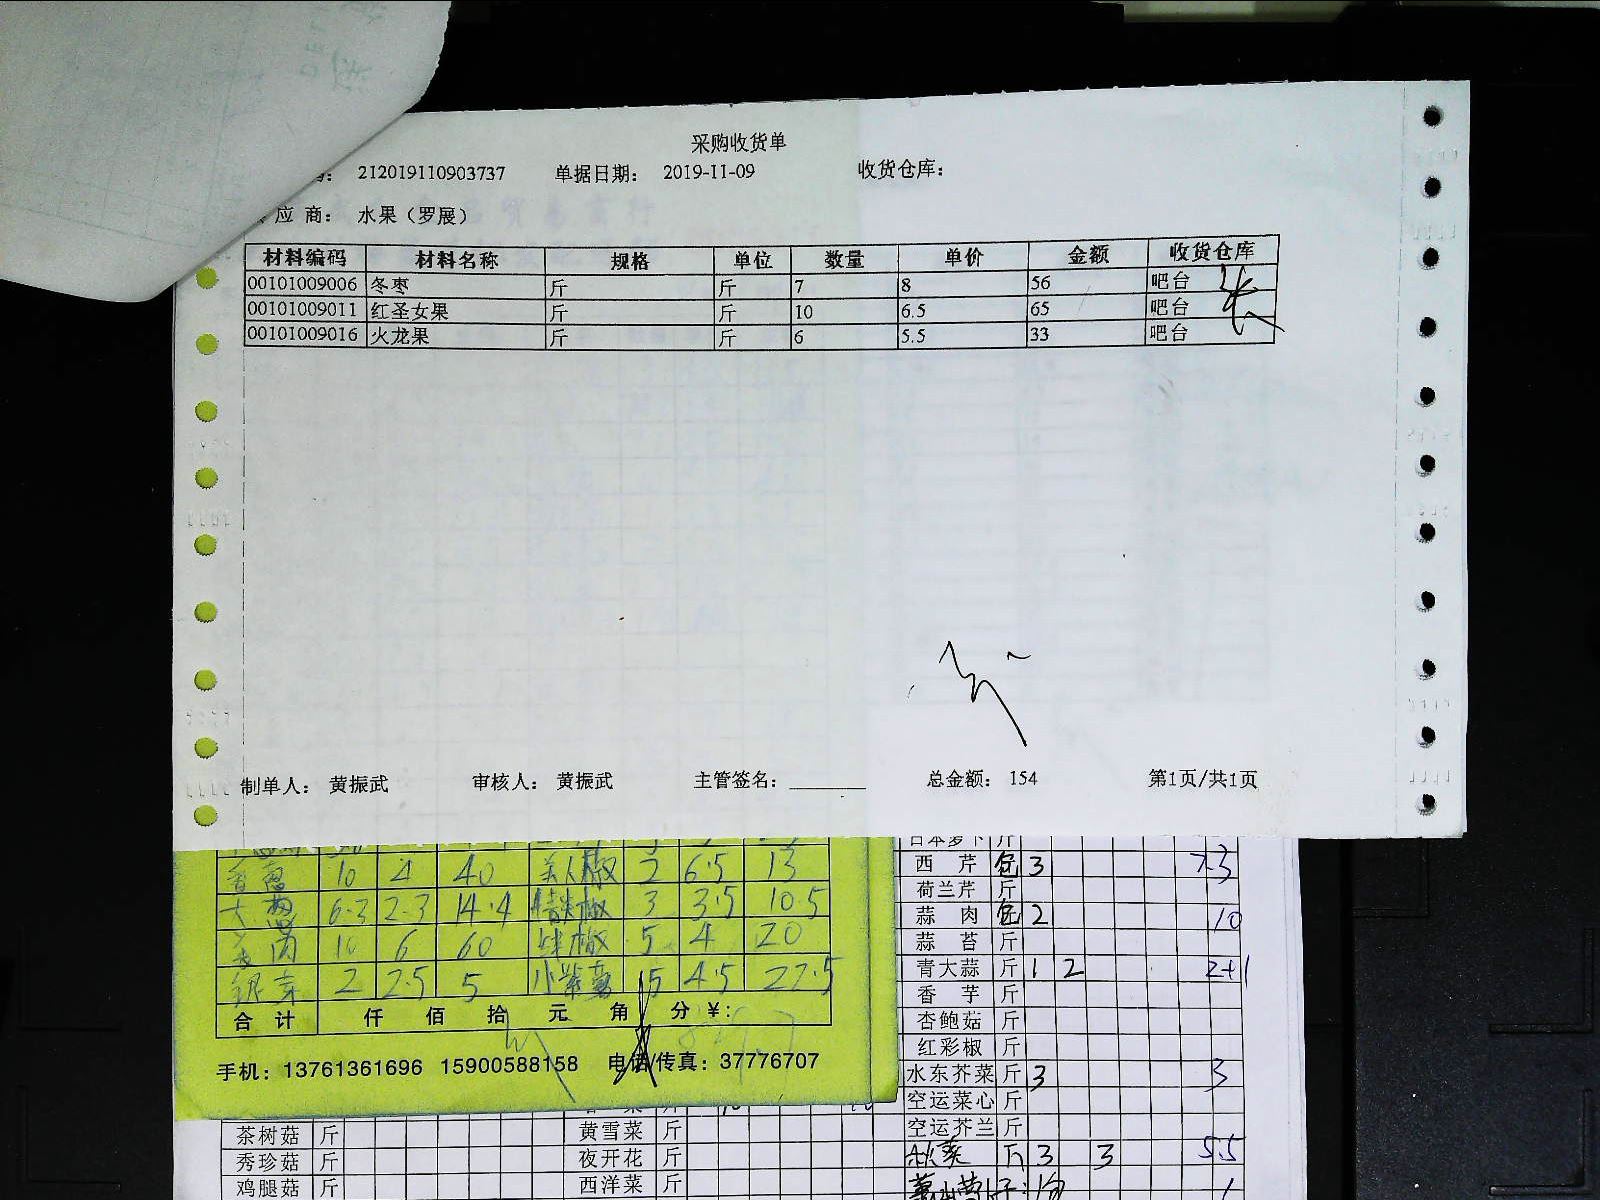 采购收货单
212019110903737 单据日期: 2019-11-09 收货仓库:
应 商: 水果（罗展）
材料编码 材料名称 规格 单位 数量 单价 金额 收货仓库
00101009006 冬枣 斤 斤 7 8 56 吧台
00101009011 红圣女果 斤 斤 10 6.5 65 吧台
00101009016 火龙果 斤 斤 6 5.5 33 吧台
制单人: 黄振武 审核人: 黄振武 主管签名: 总金额: 154 第1页/共1页
香葱 10 4 40 美人椒 2 6.5 13
大葱 6.3 2.3 14.4 椒 3 3.5 10.5
10 6 60 椒 5 4 20
银芽 2 2.5 5 小紫薯 15 4.5 22.5
合 计 仟 佰 拾 元 角 分 ¥:
手机: 13761361696 15900588158 电话/传真: 37776707
日本萝卜 斤
西 芹 包 3 7.3
荷兰芹 斤
蒜 肉 包 2 10
蒜 苔 斤
青大蒜 斤 1 2 2+1
香 芋 斤
杏鲍菇 斤
红彩椒 斤
水东芥菜 斤 3 3
空运菜心 斤
空运芥兰 斤
秋葵 斤 3 3 5.5
茶树菇 斤 黄雪菜 斤
秀珍菇 斤 夜开花 斤
鸡腿菇 斤 西洋菜 斤